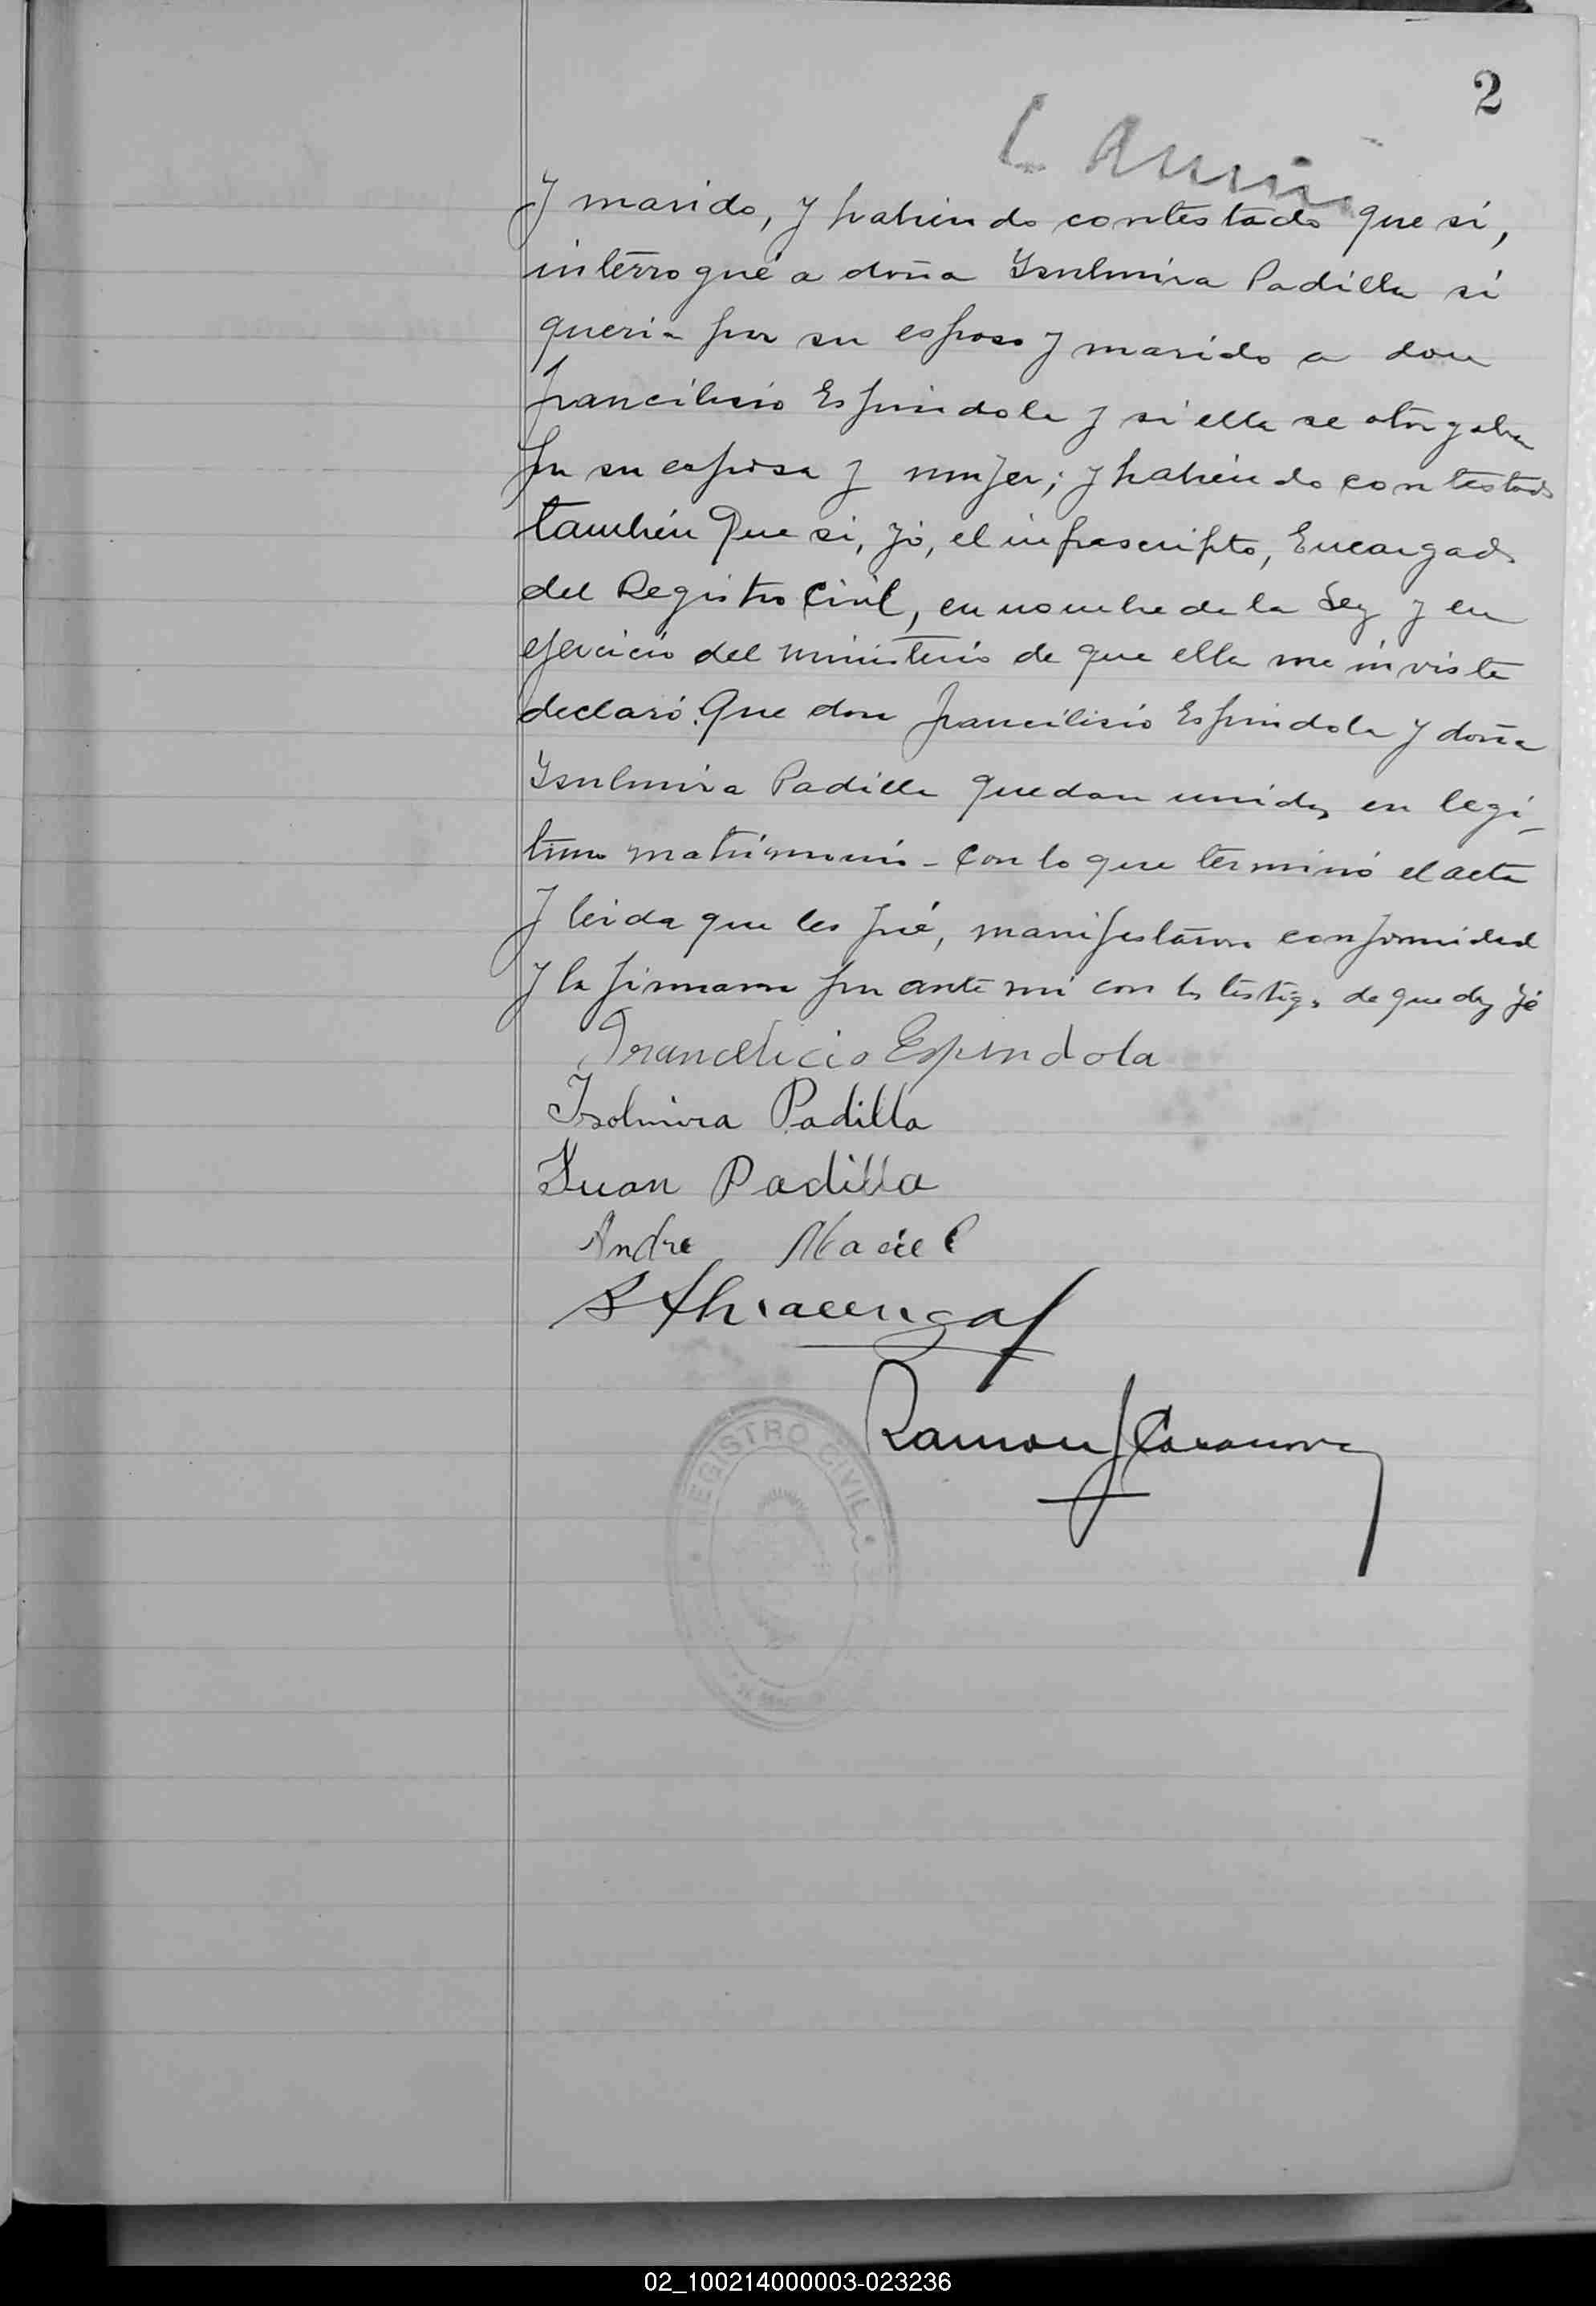 2
y marido, y habiendo contestado que si,
interrogué a doña Ysulmira Padilla si
queria por su esposo y marido a don
Francilicio Espindola y si ella se otorgaba
por su esposa y mujer; y habiendo contestado
también Que si, yó, el infrascripto, Encargado
del Registro Civil, en nombre de la Ley y en
ejercicio del ministerio de que ella me inviste
declaró: Que don Francilicio Espindola y doña
Ysulmira Padilla quedan unidos en legí-
timo matrimonio - Con lo que terminó el acta
y leida que les fué, manifestaron conformidad
y la firmaron por ante mi con los testigos de que doy fé
Francelicio Espindola
Isolmira Padilla
Juan Padilla
Andre Maciel
Ramon J Casanova
REGISTRO CIVIL
02_100214000003-023236